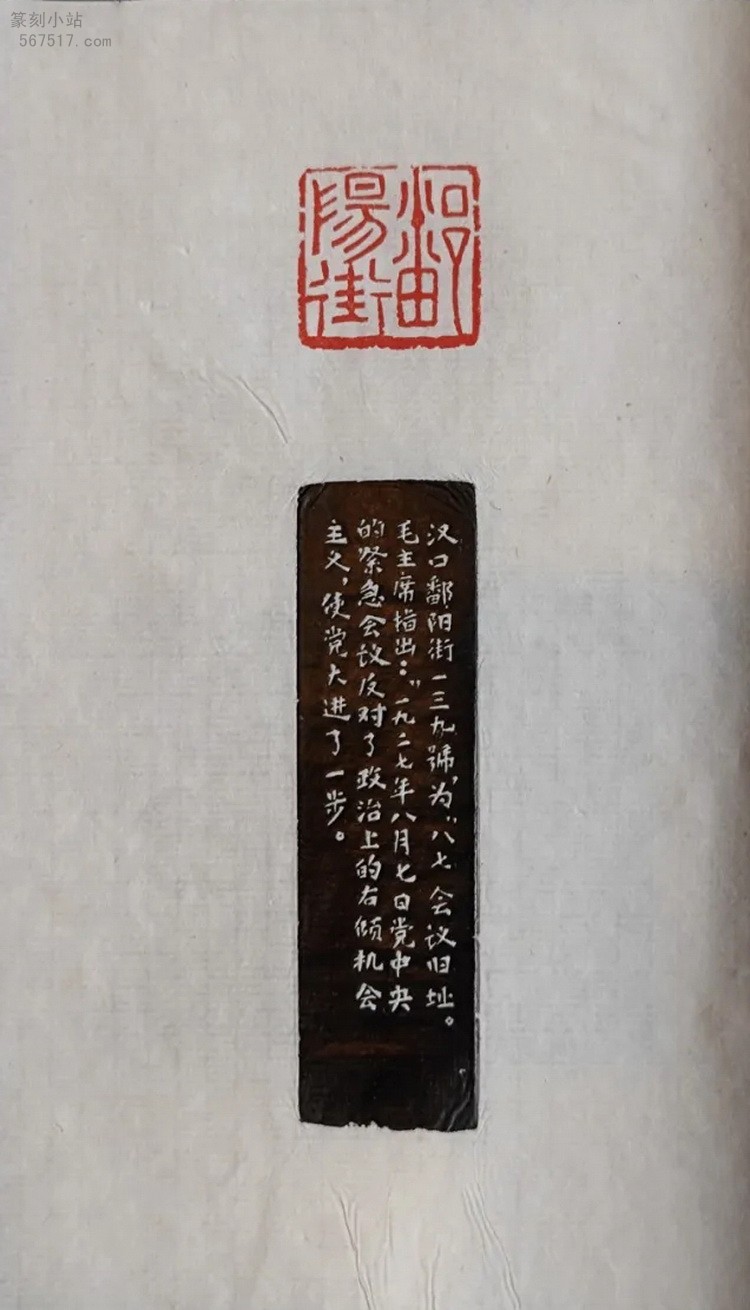 篆刻小站
567517.com
鄱
陽街
汉口鄱阳街一三九號,为“八七会议旧址。
毛主席指出:“一九二七年八月七日党中央
的紧急会议反对了政治上的右倾机会
主义,使党大进了一步。